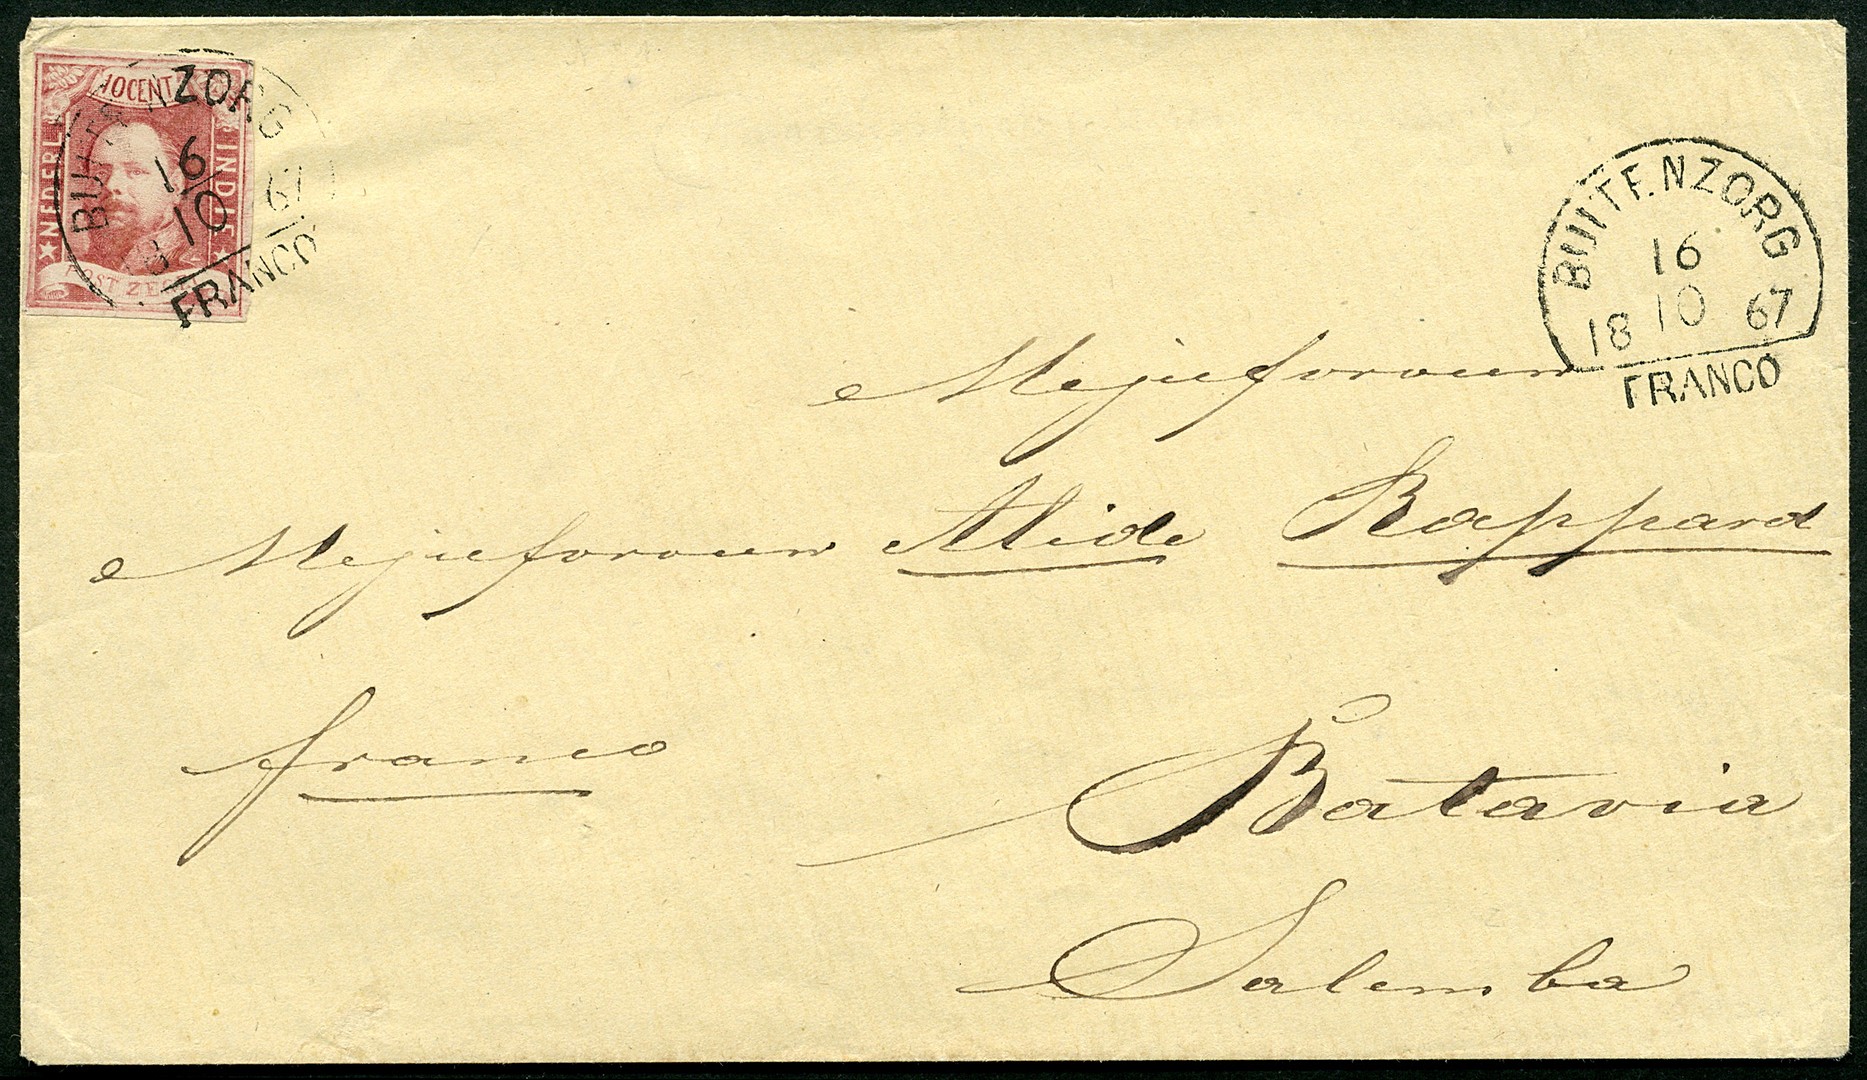 10 CENT
NEDERL.
INDIE
POST ZEGEL
BUITENZORG
16
10
18 67
FRANCO
BUITENZORG
16
10
18 67
FRANCO
Mejufvrouw
Mejufvrouw Alide Rappard
franco
Batavia
Salemba